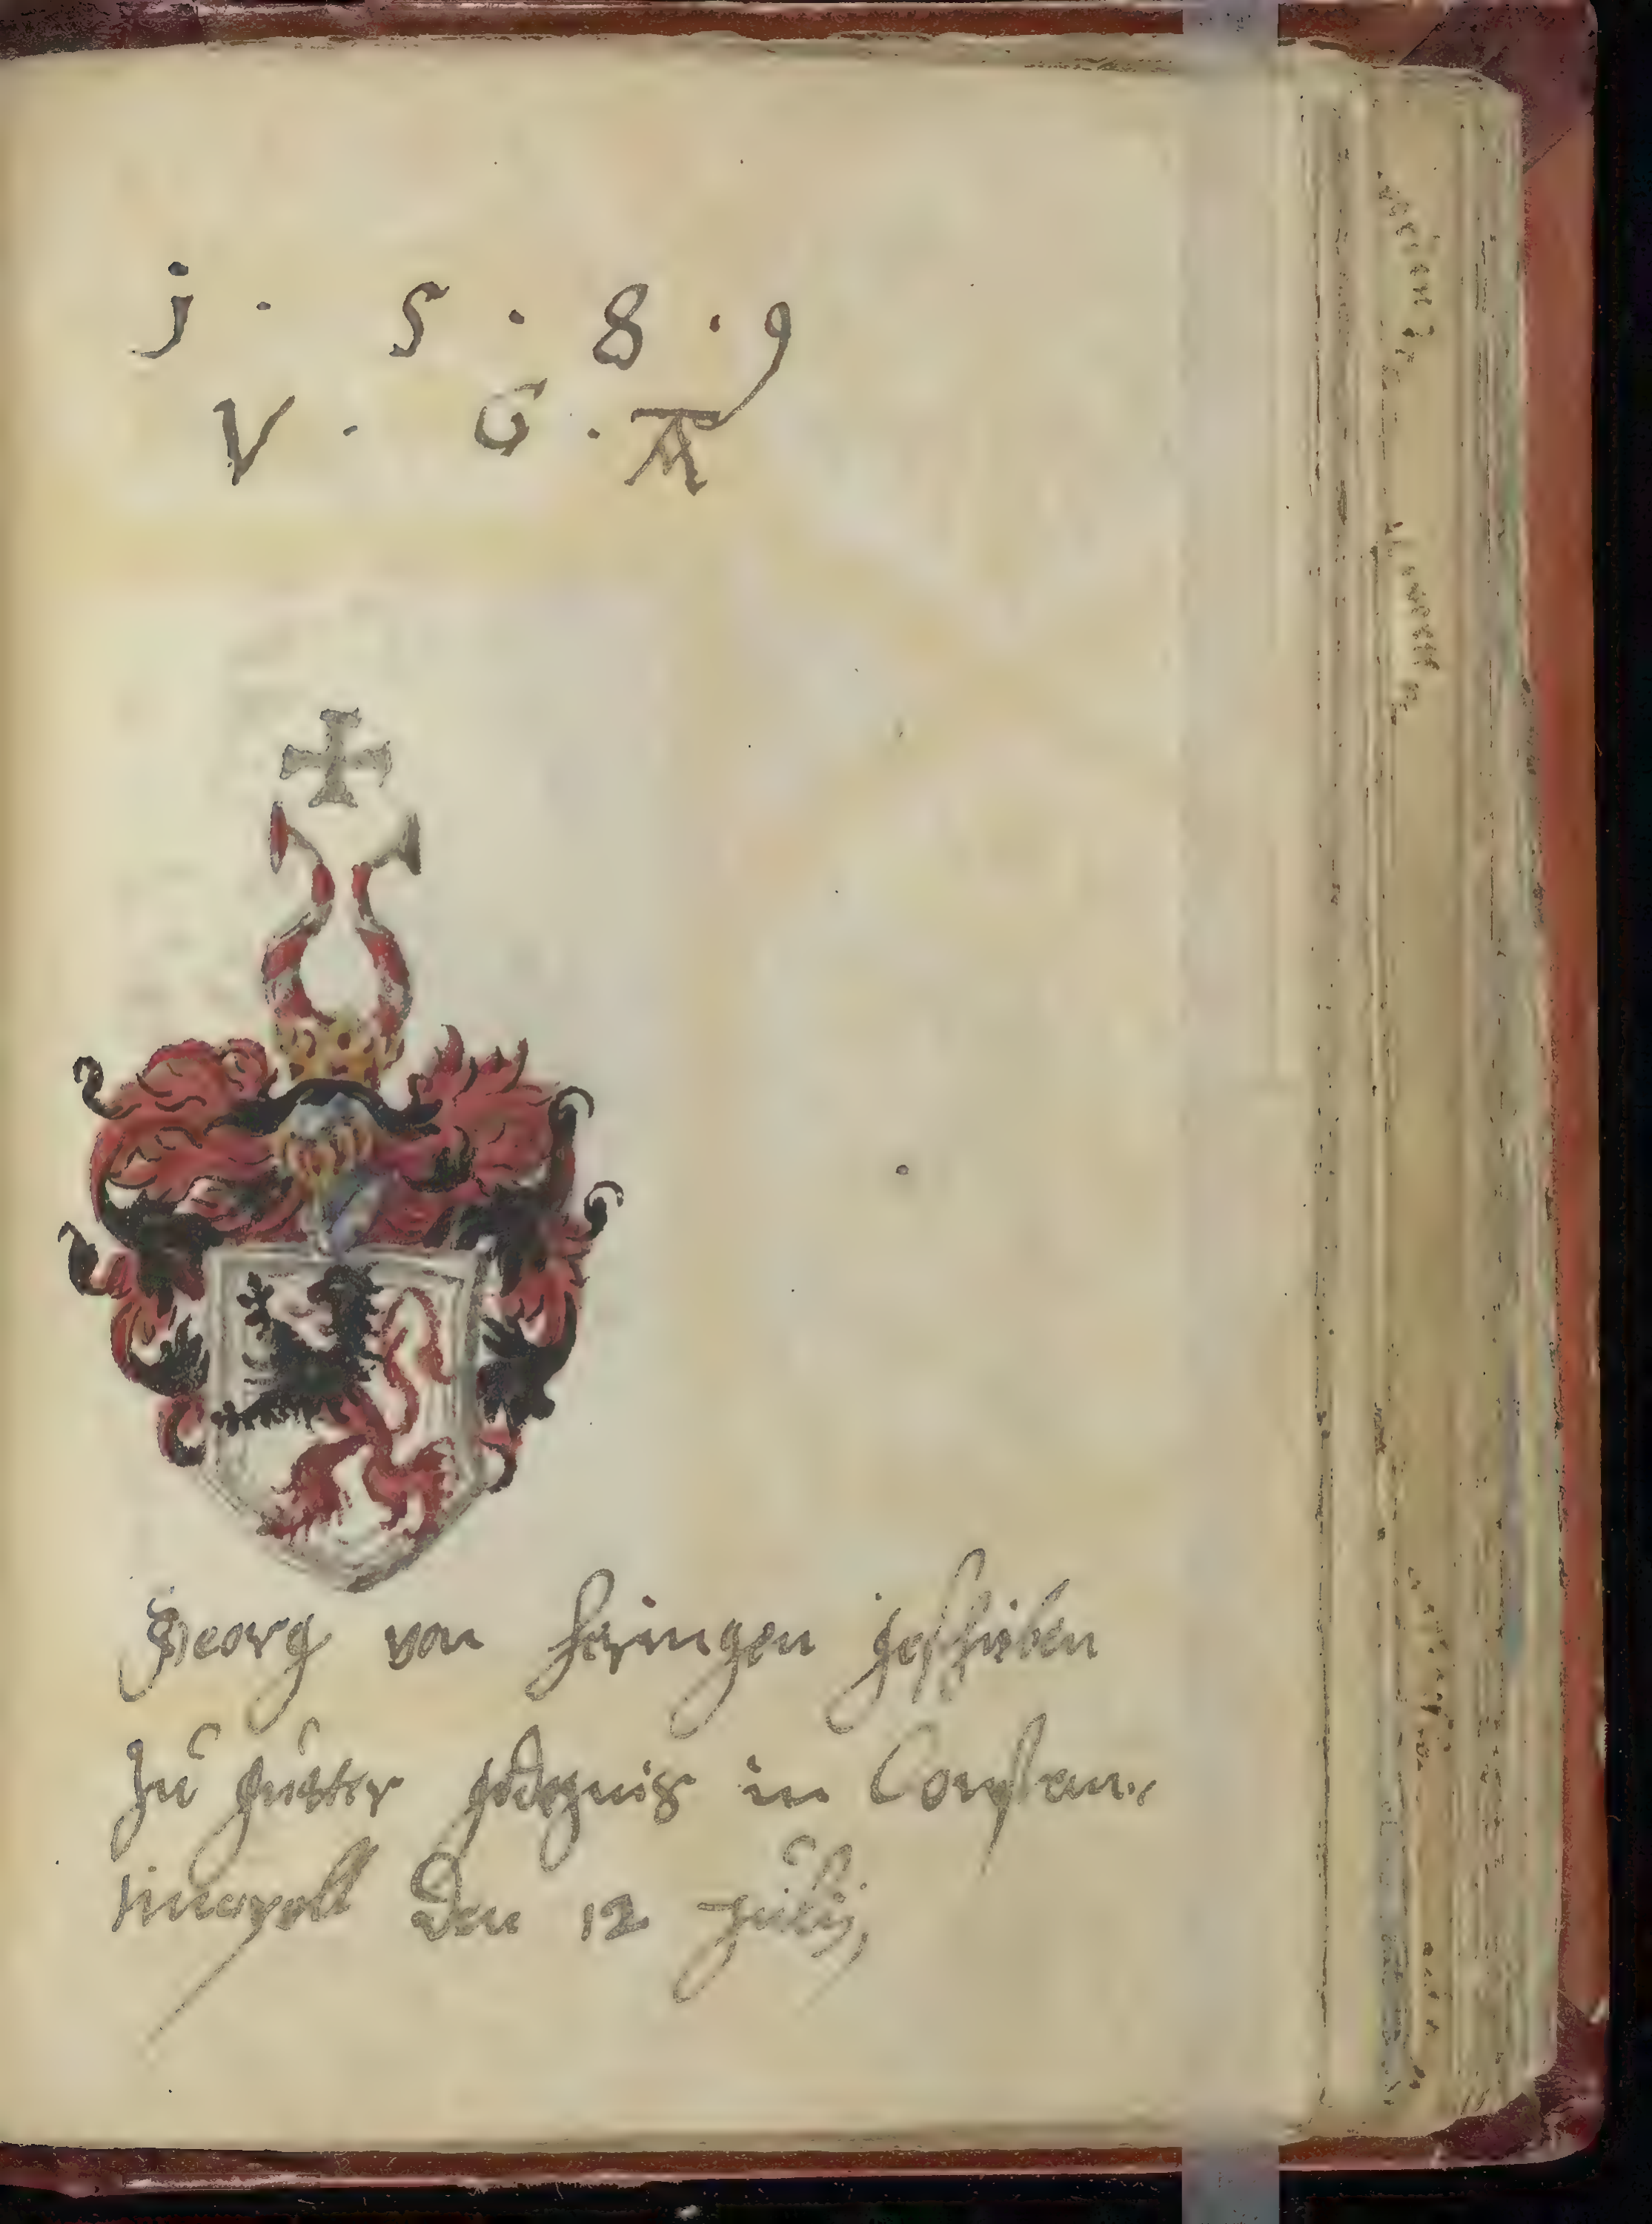 j · 5 · 8 · 9
V · G · A
Georg von Heringen geschriben
Zu gutter gedechtnis in Constan-
tinopoll den 12 Julij,